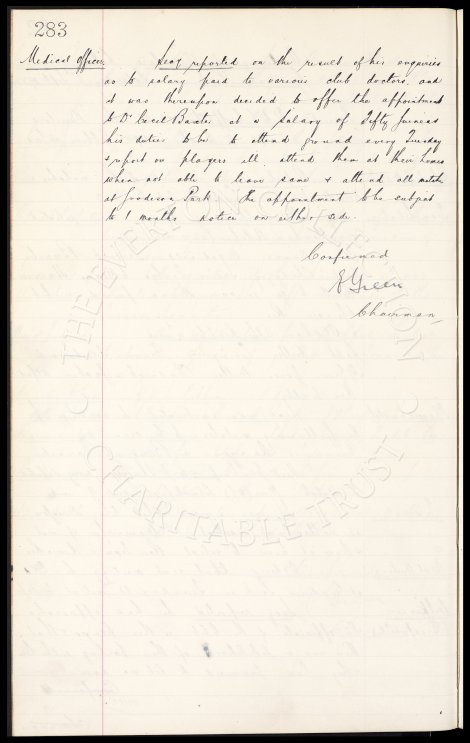 283
Medical Officer. Secy reported on the result of his enquiries
as to salary paid to various club doctors. and
it was thereupon decided to offer the appointment
to Dr Cecil Baxter at a salary of Fifty Guineas
his duties to be to attend ground every Tuesday
& report on players ill, attend them at their homes
when not able to leave same & attend all matches
at Goodison Park. The appointment to be subject
to 1 months notice on either side.
Confirmed
E Green
Chairman
THE EVERTON COLLECTION
CHARITABLE TRUST